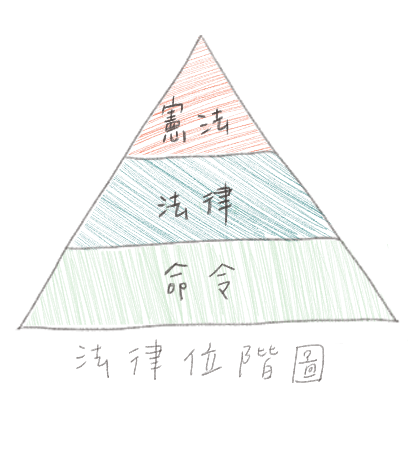 憲法
法律
命令
法律位階圖